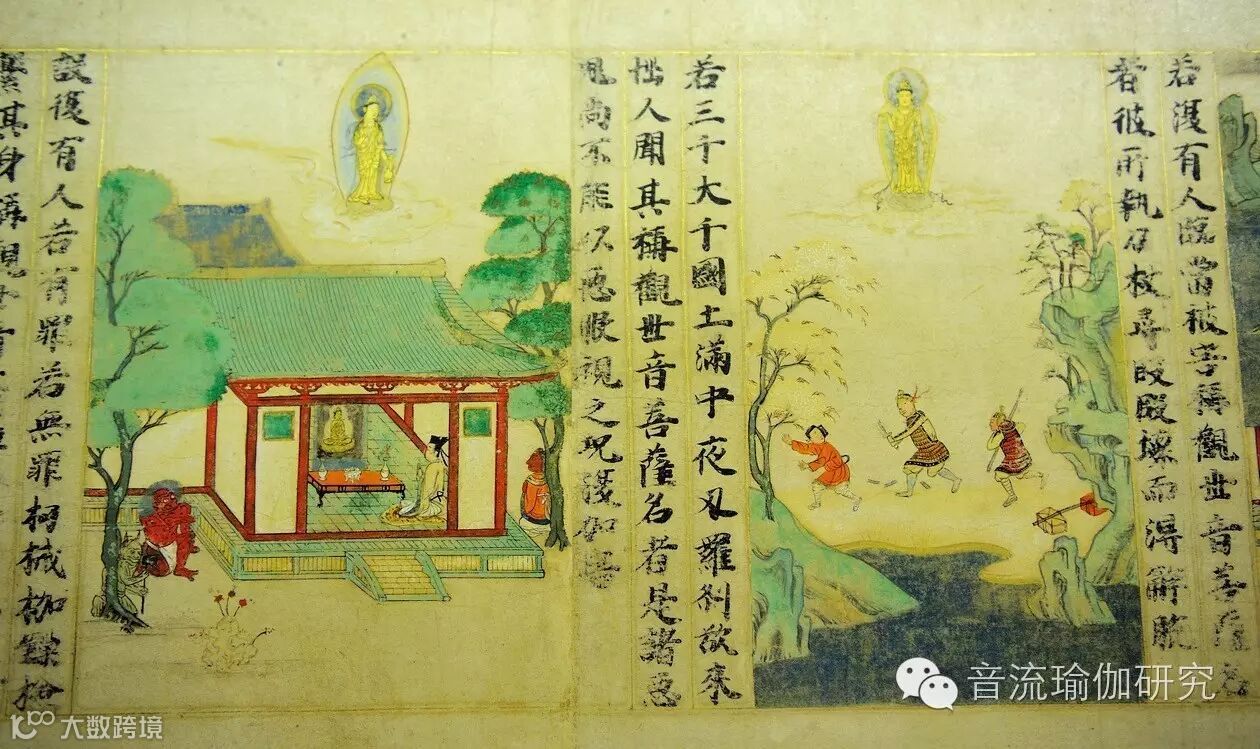 若復有人臨當被害稱觀世音菩薩名
者彼所執刀杖尋段段壞而得解脫
若三千大千國土滿中夜叉羅剎欲來
惱人聞其稱觀世音菩薩名者是諸惡
鬼尚不能以惡眼視之況復加害
設復有人若有罪若無罪杻械枷鎖檢
繫其身稱觀
音流瑜伽研究
大数跨境